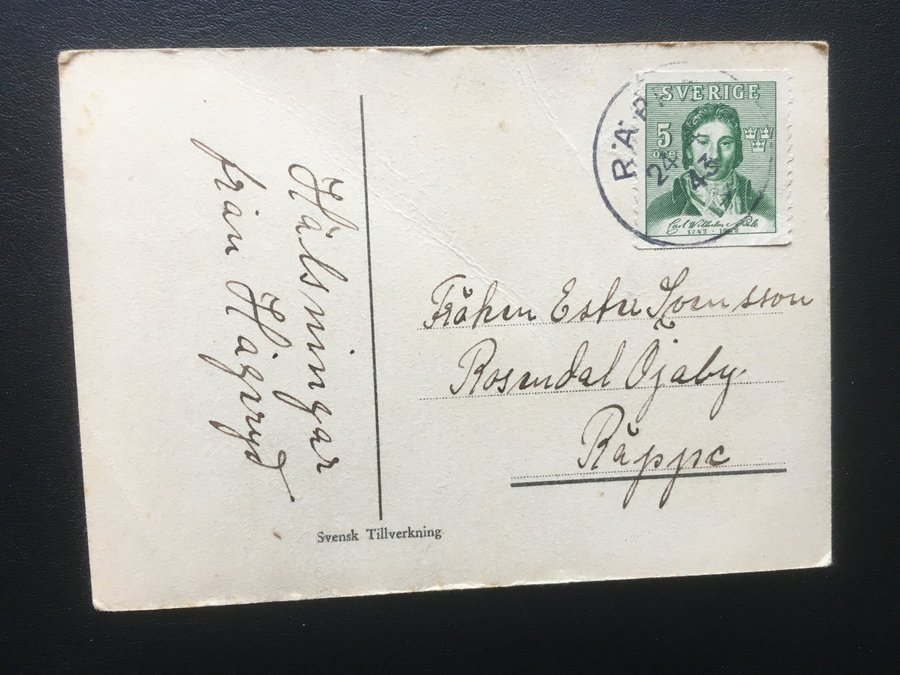 Hälsningar
från Hagsryd
SVERIGE
5
öre
RÄP
24
43
Carl Wilhelm Scheele
1742-1942
Fröken Ester Svensson
Rosendal Öjaby.
Räppe
Svensk Tillverkning